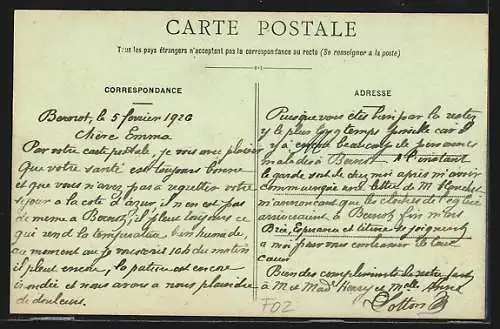 CARTE POSTALE
Tous les pays étrangers n'acceptent pas la correspondance au recto (Se renseigner à la poste)
CORRESPONDANCE
ADRESSE
le 5 février 1920
Chère Emma
Par votre carte postale, je vois avec plaisir
que votre santé est toujours bonne
et que vous n'avez pas a regretter votre
séjour a la cote d'azur, il n'en est pas
de meme a il pleut toujours ce
qui rend la température bien humide,
au moment ou je vous ecris 10h du matin
il pleut encore, la pature est encore
inondée et nous avons a nous plaindre
de douleurs.
Puisque vous étes bien par la restez
y le plus longtemps possible car il
y a encore beaucoup de personnes
malades à A l'instant
le garde sort de chez moi après m'avoir
communiqué une lettre de M.
m'annoncant que les cloches de l'église
arriveraient à fin mars
et se joignent
a moi pour vous embrasser de tout
cœur
Bien des compliments de notre part
à M et Mad Henry et Melle
Cotton
F02